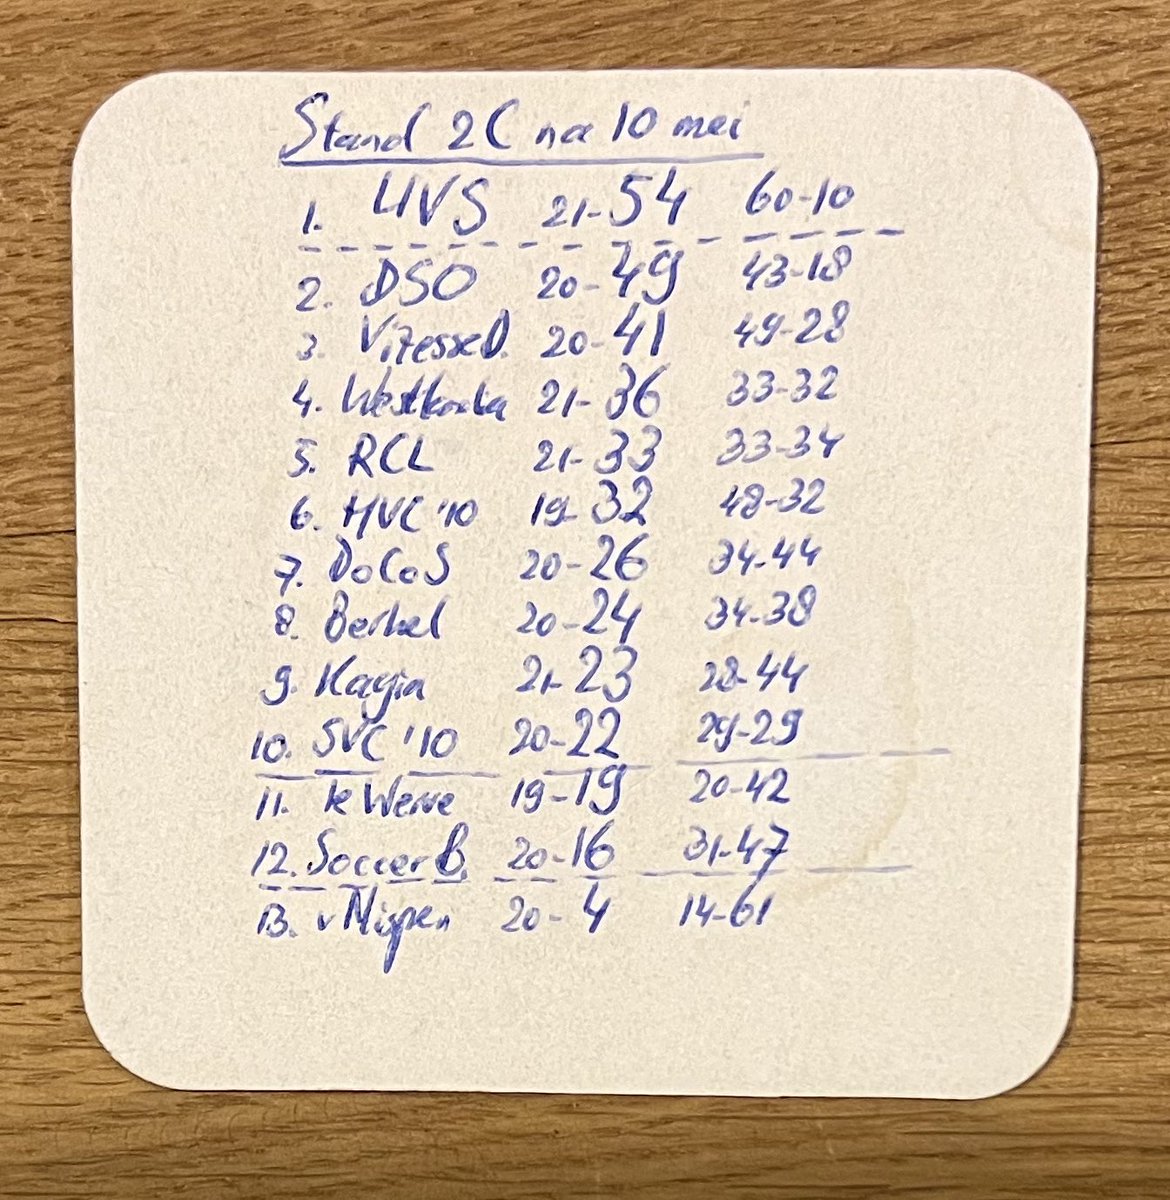 Stand 2C na 10 mei
1. UVS 21-54 60-10
2. DSO 20-49 43-18
3. Vitesse D. 20-41 49-28
4. Westlandia 21-36 33-32
5. RCL 21-33 33-34
6. HVC '10 19-32 48-32
7. DoCoS 20-26 34-44
8. Berkel 20-24 34-38
9. Kagia 21-23 28-44
10. SVC '10 20-22 29-29
11. te Werve 19-19 20-42
12. Soccer B. 20-16 31-47
13. v Nispen 20-4 14-61